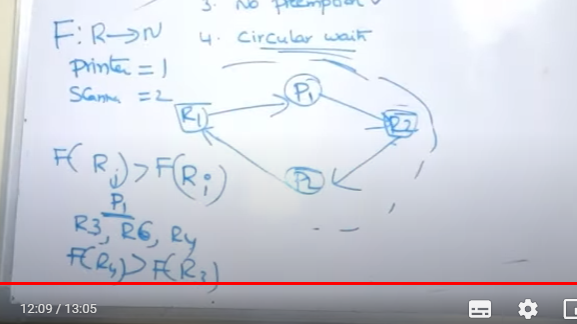 3. No Preemption
F: R→N
4. Circular wait
Printer = 1
Scanner = 2
P1
R1
R2
P2
F(Rj) > F(Ri)
P1
R3, R6, R4
F(R4) > F(R3)
12:09 / 13:05